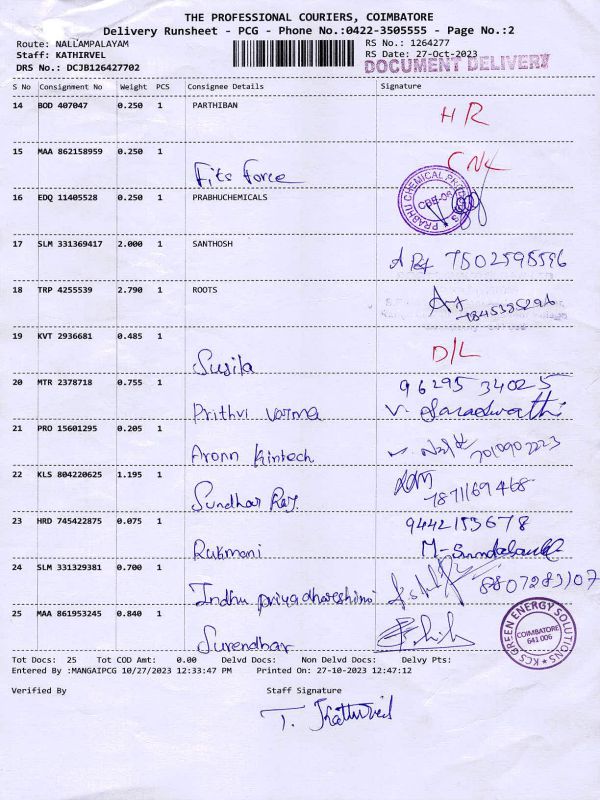 THE PROFESSIONAL COURIERS, COIMBATORE
Delivery Runsheet - PCG - Phone No.:0422-3505555 - Page No.:2
Route: NALLAMPALAYAM RS No.: 1264277
Staff: KATHIRVEL RS Date: 27-Oct-2023
DRS No.: DCJB126427702 DOCUMENT DELIVERY
S No Consignment No Weight PCS Consignee Details Signature
14 BOD 407047 0.250 1 PARTHIBAN HR
15 MAA 862158959 0.250 1
Fits Force
16 EDQ 11405528 0.250 1 PRABHUCHEMICALS
PRABHU CHEMICAL
17 SLM 331369417 2.000 1 SANTHOSH
7502598596
18 TRP 4255539 2.790 1 ROOTS
7845385296
19 KVT 2936681 0.485 1 D/L
Susila
20 MTR 2378718 0.755 1 96295 34025
Prithvi Varma V. Saraswathi
21 PRO 15601295 0.205 1
Aronn Kintech
22 KLS 804220625 1.195 1
Sundhar Raj. 7871169468
23 HRD 745422875 0.075 1 9442153678
Rukmani
24 SLM 331329381 0.700 1
Indhu priyadhareshini
25 MAA 861953245 0.840 1
Surendhar
KCS GREEN ENERGY SOLUTIONS
COIMBATORE
641 006
Tot Docs: 25 Tot COD Amt: 0.00 Delvd Docs: Non Delvd Docs: Delvy Pts:
Entered By :MANGAIPCG 10/27/2023 12:33:47 PM Printed On: 27-10-2023 12:47:12
Verified By Staff Signature
T. Kathirvel